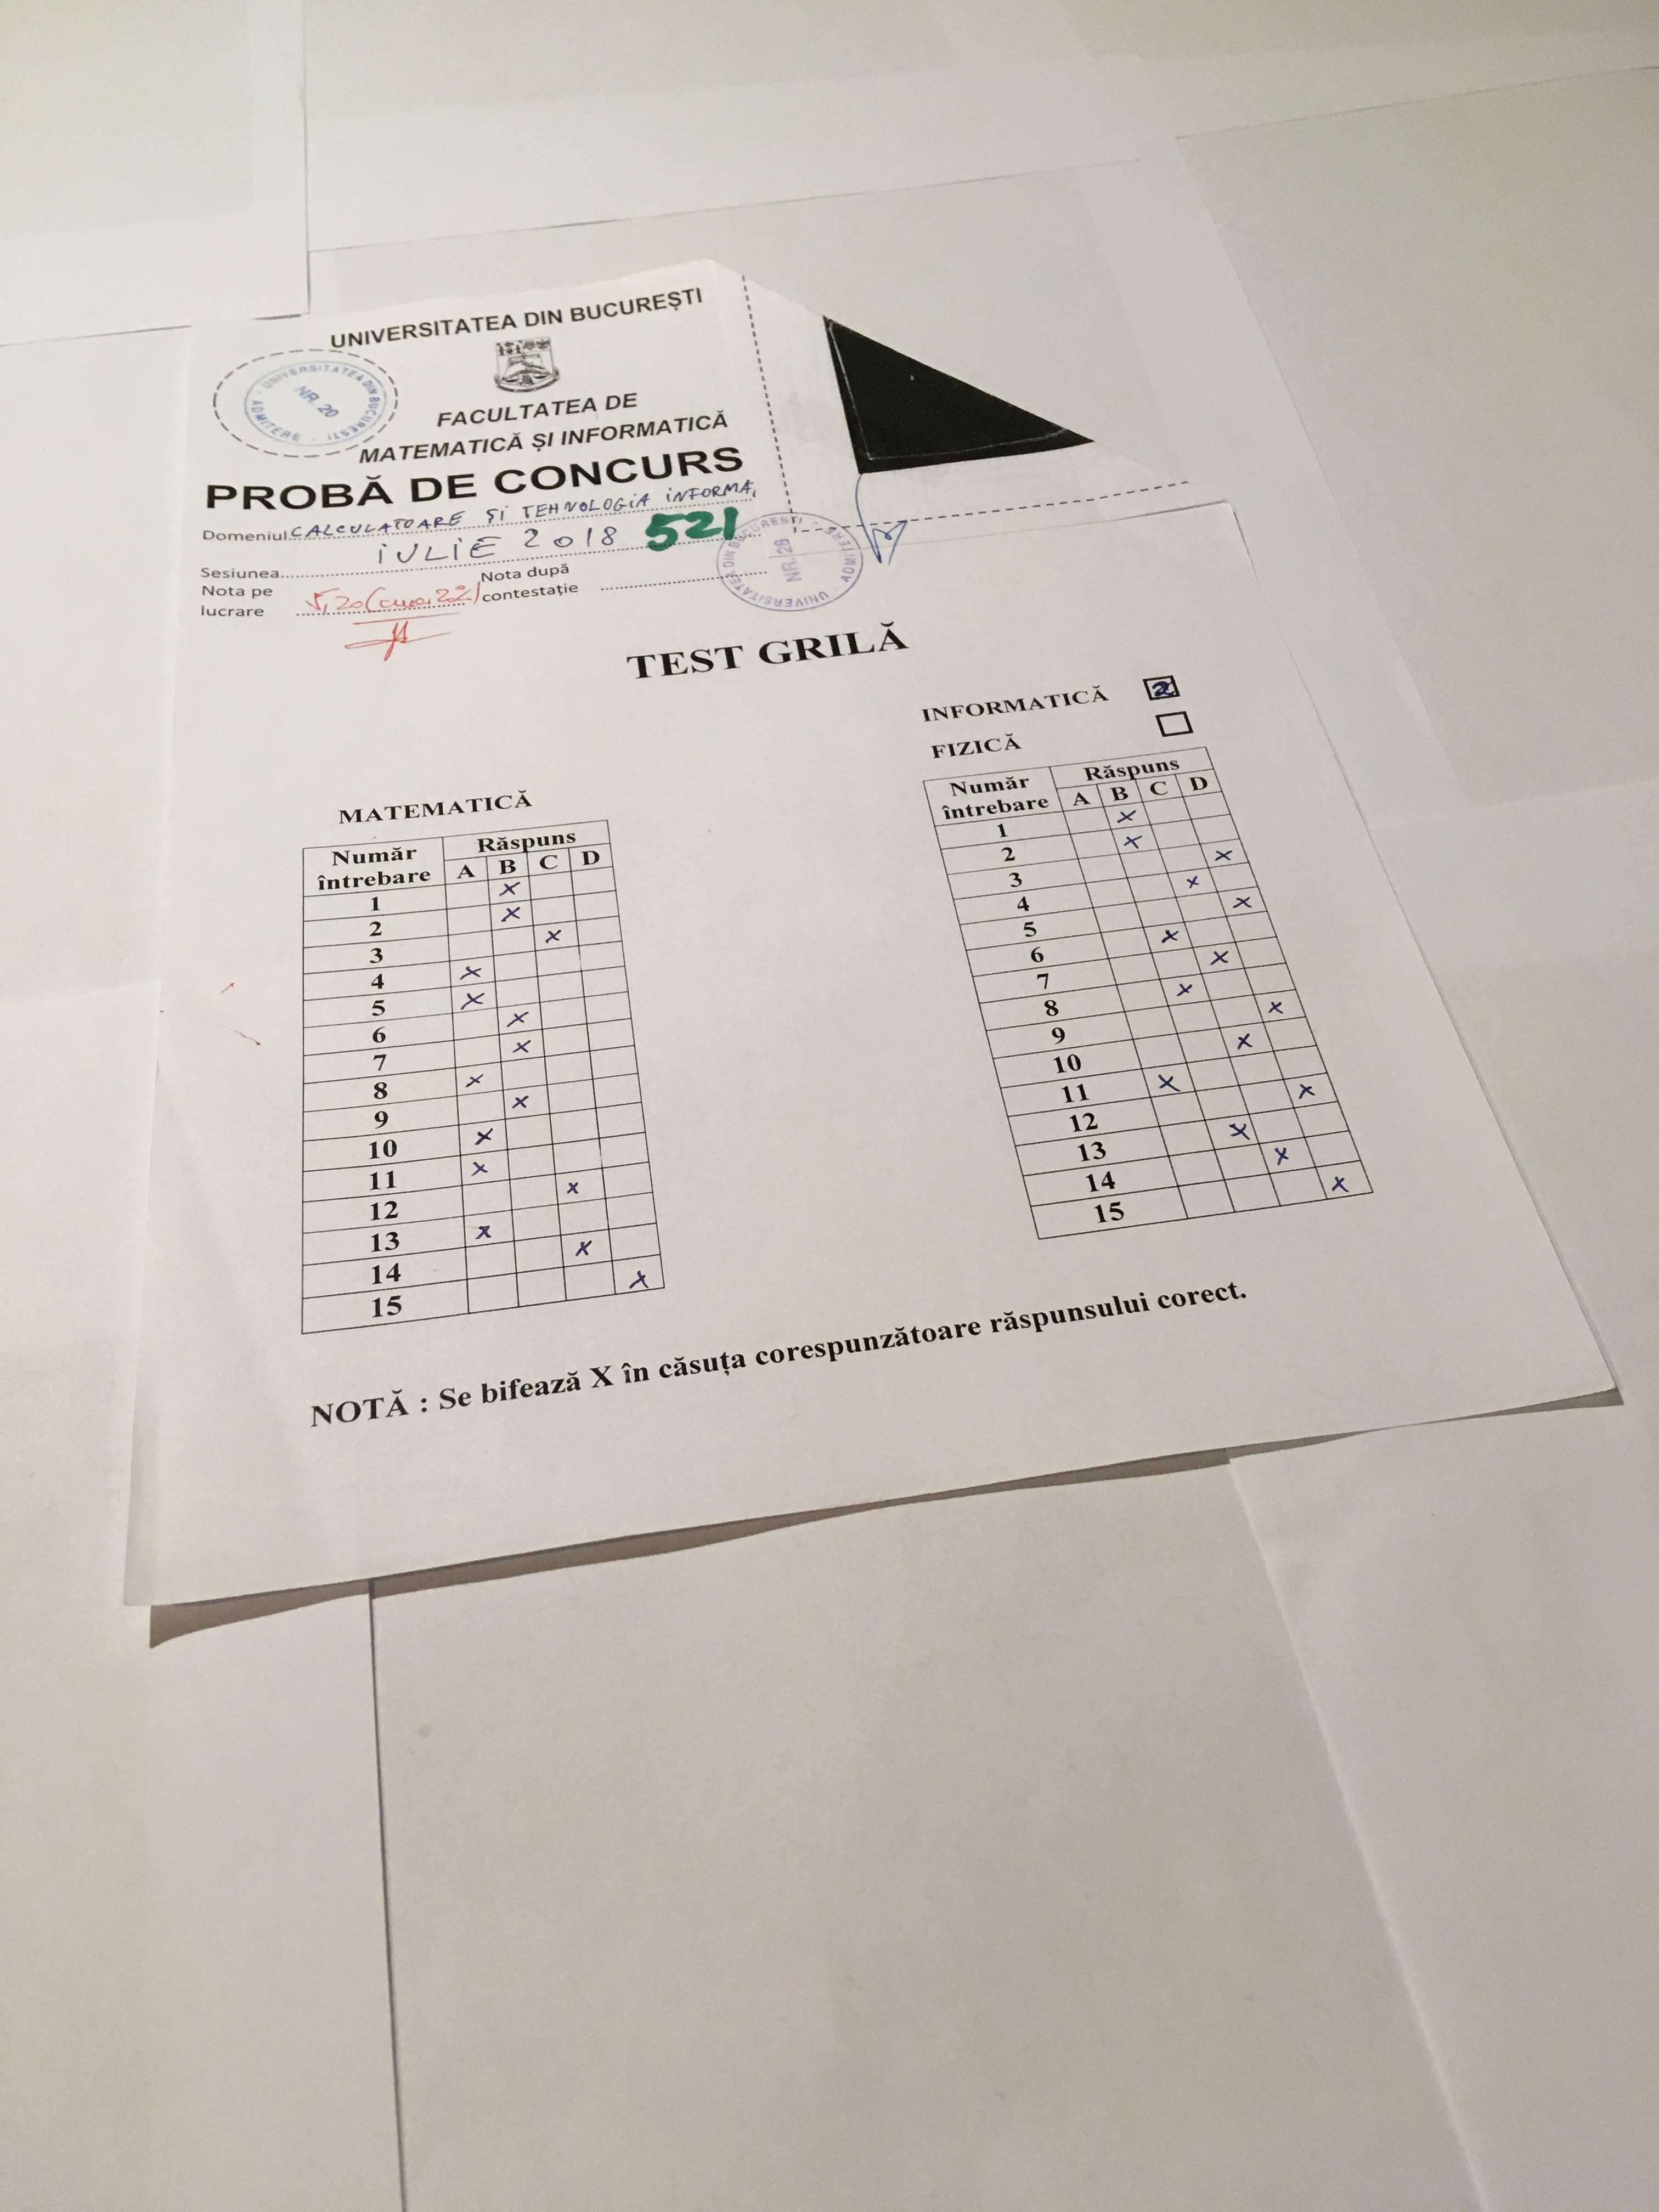 UNIVERSITATEA DIN BUCUREȘTI
UNIVERSITATEA DIN BUCUREȘTI - ADMITERE -
NR. 20
FACULTATEA DE
MATEMATICĂ ȘI INFORMATICĂ
PROBĂ DE CONCURS
Domeniul CALCULATOARE ȘI TEHNOLOGIA INFORMA.
Sesiunea IULIE 2018 521
Nota pe lucrare 5,20 Nota după contestație
UNIVERSITATEA DIN BUCUREȘTI - ADMITERE
NR. 26
TEST GRILĂ
INFORMATICĂ
FIZICĂ
MATEMATICĂ
Număr întrebare Răspuns
A B C D
1 X
2 X
3 X
4 X
5 X
6 X
7 X
8 X
9 X
10 X
11 X
12 X
13 X
14 X
15 X
Număr întrebare Răspuns
A B C D
1 X
2 X
3 X
4 X
5 X
6 X
7 X
8 X
9 X
10 X
11 X
12 X
13 X
14 X
15 X
NOTĂ : Se bifează X în căsuța corespunzătoare răspunsului corect.